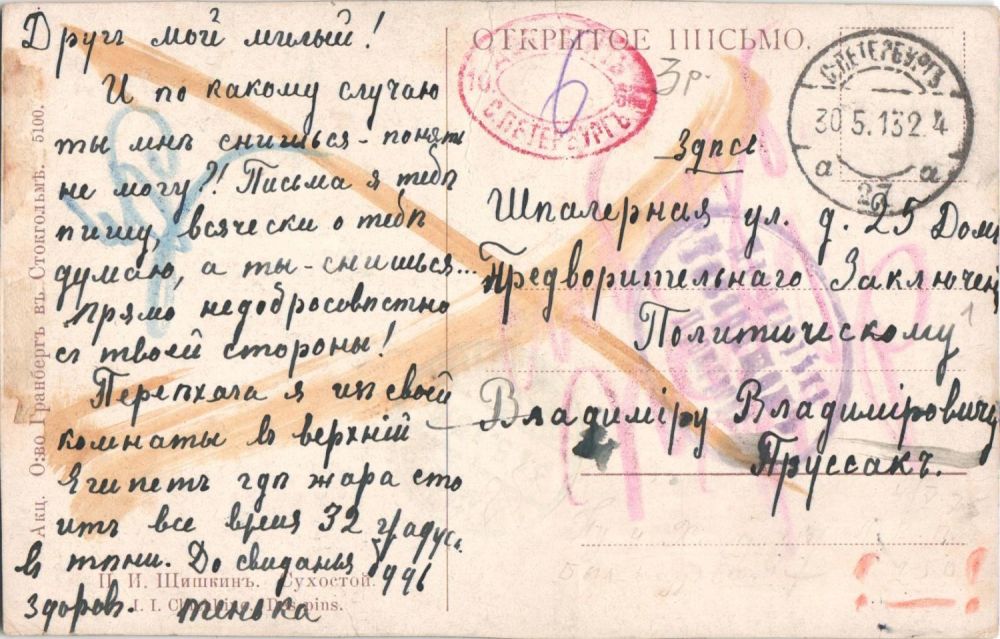 Другъ мой милый!
И по какому случаю
ты мнѣ снишься - понять
не могу?! Письма я тебѣ
пишу, всячески о тебѣ
думаю, а ты - снишься...
Прямо недобросовѣстно
съ твоей стороны!
Переѣхала я изъ своей
комнаты въ верхній
Египетъ гдѣ жара сто
итъ все время 32 градус.
въ тѣни. До свиданья будь
здоров. тенька
Акц. О:во Гранбергъ въ Стокгольмѣ. 5100.
И. И. Шишкинъ. Сухостой.
I. I.
pins.
ОТКРЫТОЕ ПИСЬМО.
С.ПЕТЕРБУРГЪ
6
3р.
С.ПЕТЕРБУРГЪ
30 5.13 2. 4
а а
23
Здпсь
Шпалерная ул. д. 25 Домъ
Предворительнаго Заключен
Политическому
Владиміру Владиміровичу
Пруссакъ.
1